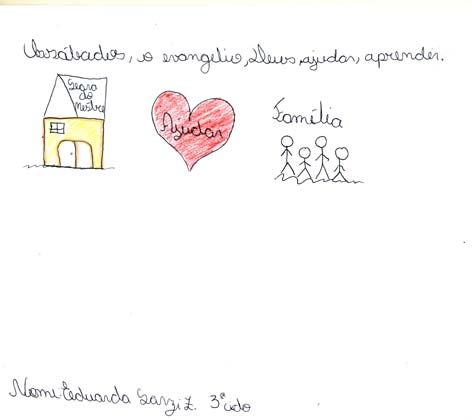 Os sábados, o evangelio, Deus, ajudar, aprender.
Seara
do
mestre
Ajudar
Família
Nome: Eduarda 3º ciclo